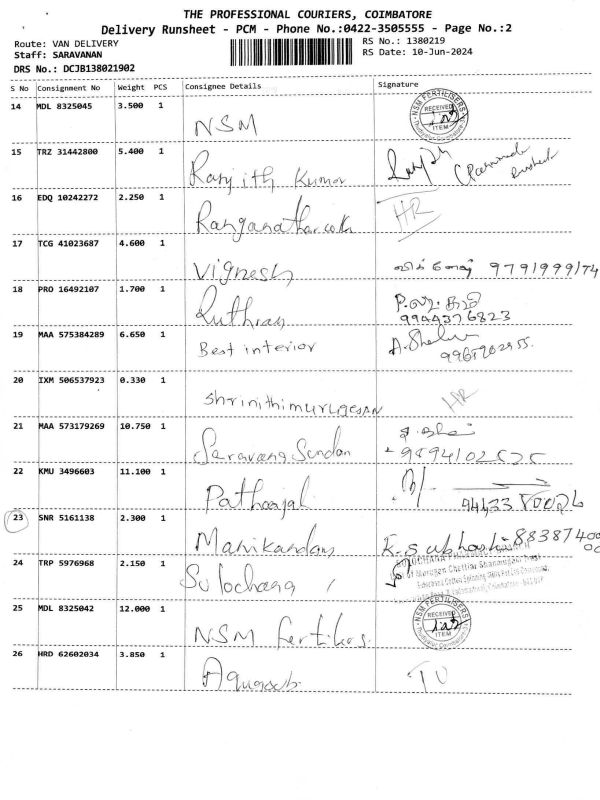 THE PROFESSIONAL COURIERS, COIMBATORE
Delivery Runsheet - PCM - Phone No.:0422-3505555 - Page No.:2
Route: VAN DELIVERY
RS No.: 1380219
Staff: SARAVANAN
RS Date: 10-Jun-2024
DRS No.: DCJB138021902
S No Consignment No Weight PCS Consignee Details Signature
14 MDL 8325045 3.500 1 NSM
NSM FERTILISERS
RECEIVED
ITEM
15 TRZ 31442800 5.400 1 Ranjith Kumar
16 EDQ 10242272 2.250 1 HR
17 TCG 41023687 4.600 1 Vignesh 9791999174
18 PRO 16492107 1.700 1 Ruthran
9944376823
19 MAA 575384289 6.650 1 Best interior
20 IXM 506537923 0.330 1 Shrinithimurugesan HR
21 MAA 573179269 10.750 1 Saravana Sundan
22 KMU 3496603 11.100 1 Pathanjal
23 SNR 5161138 2.300 1 Manikandan K.Subhash
24 TRP 5976968 2.150 1 Sulochana
25 MDL 8325042 12.000 1 NSM
NSM FERTILISERS
RECEIVED
ITEM
26 HRD 62602034 3.850 1